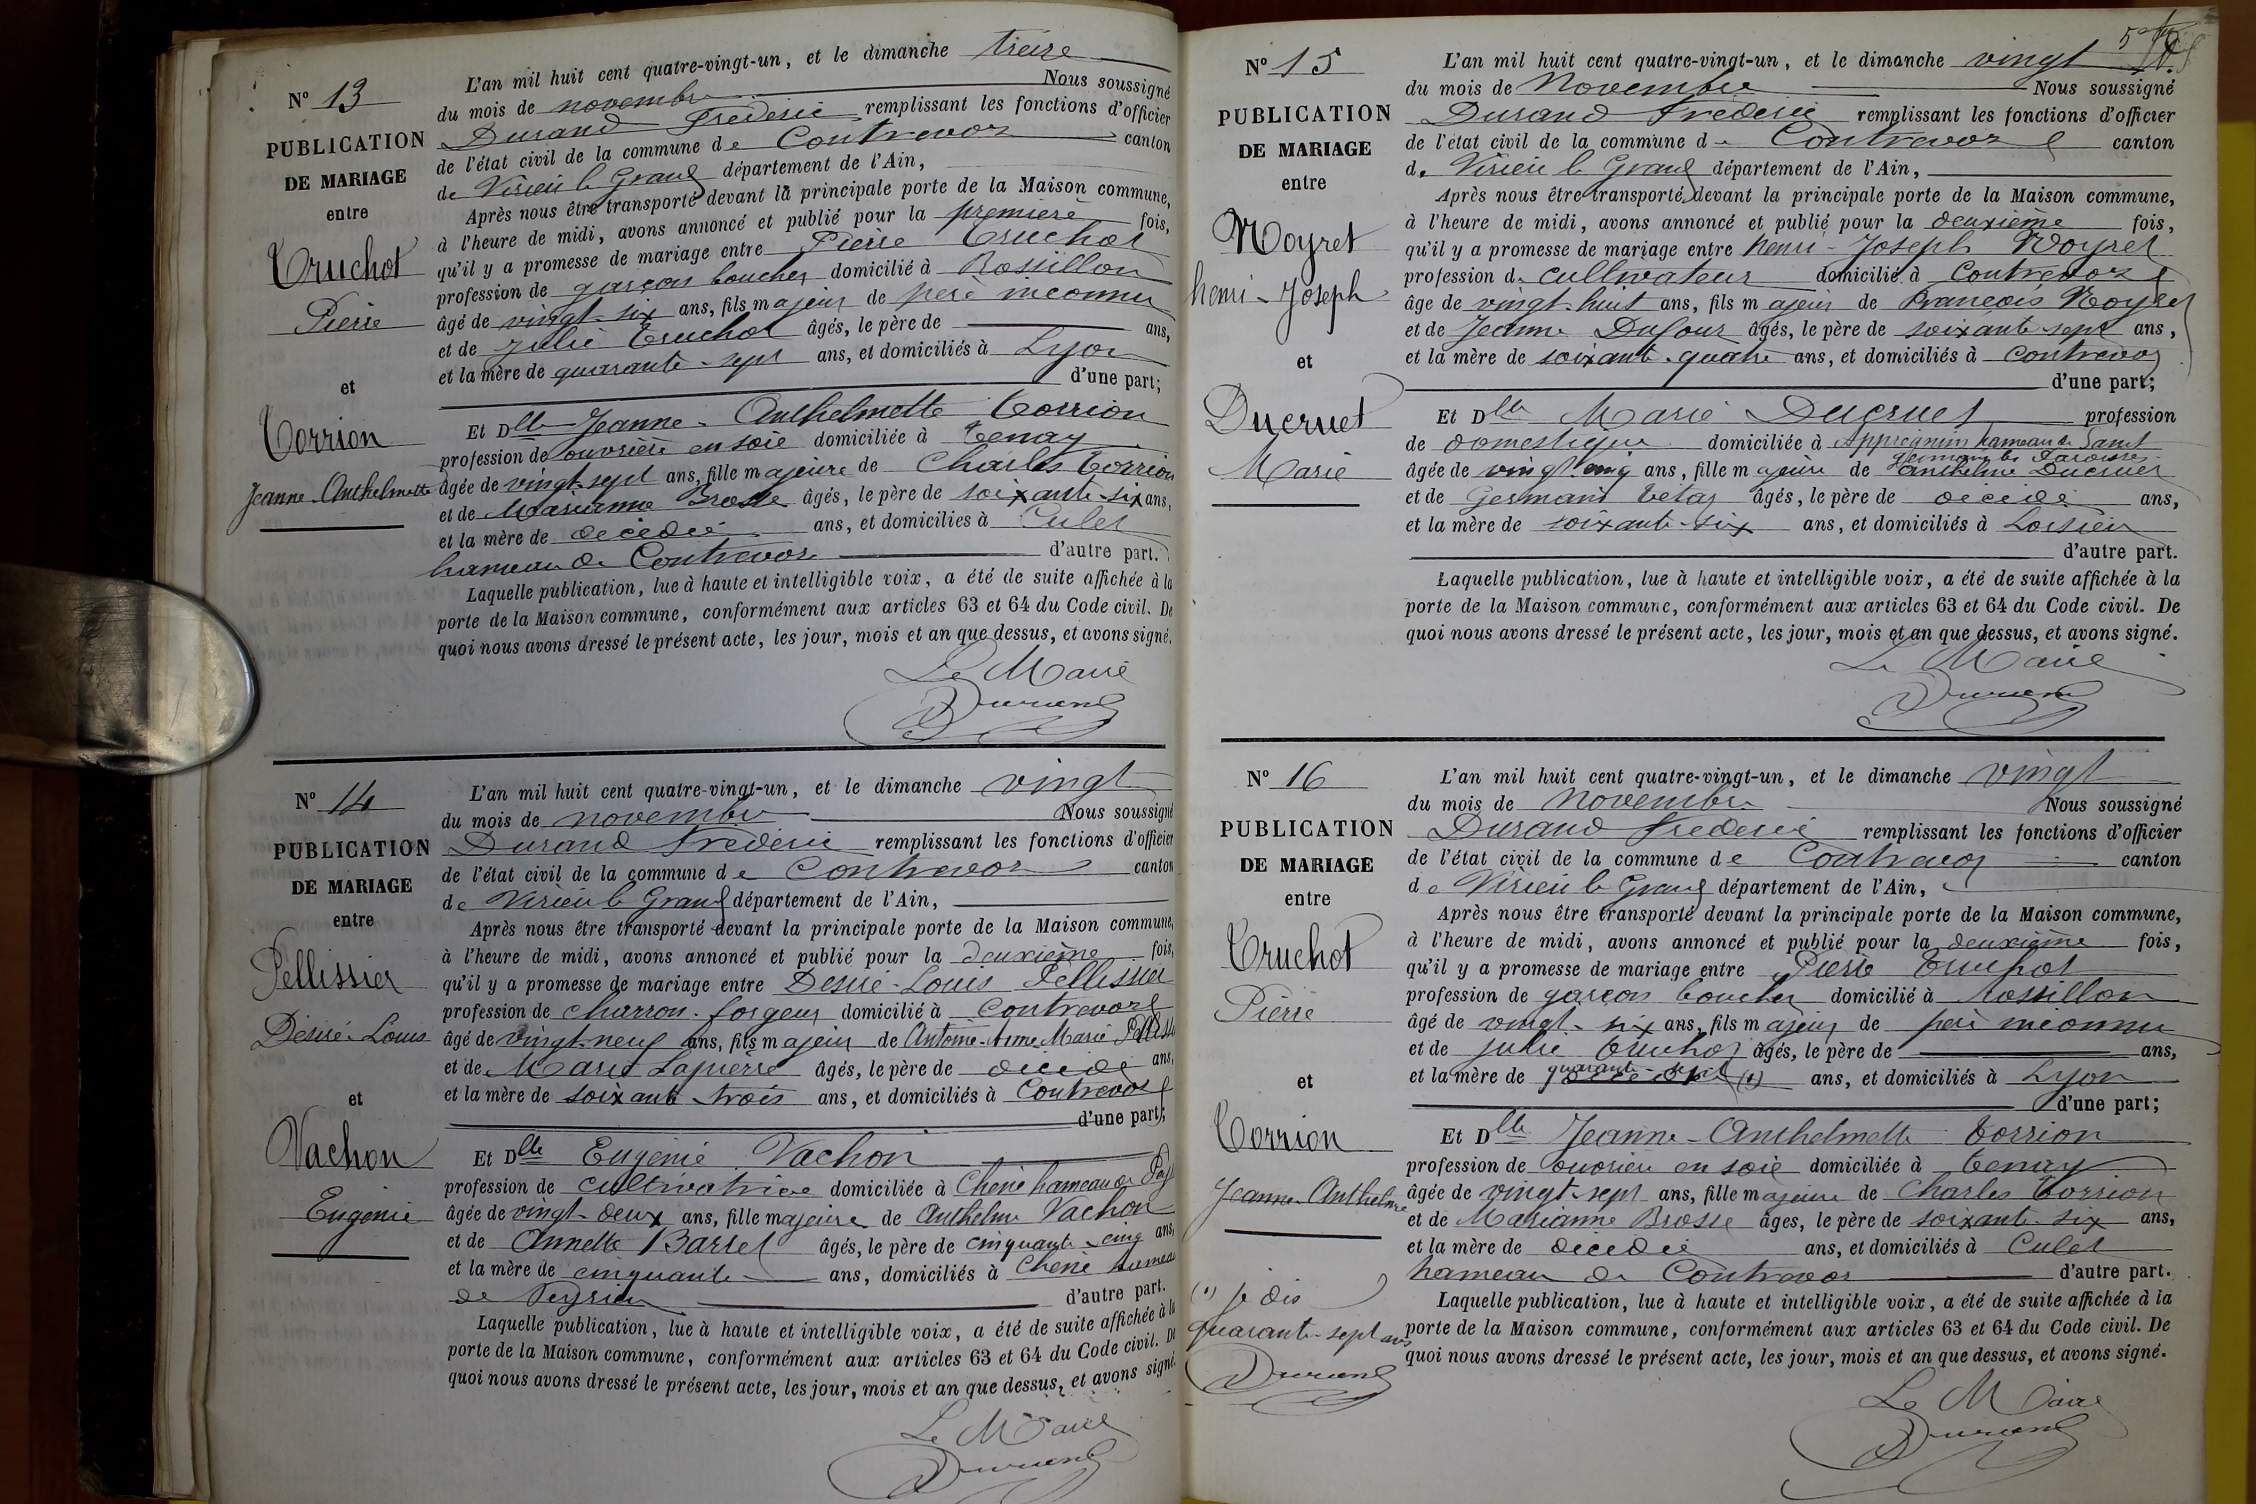 N° 13
PUBLICATION
DE MARIAGE
entre
Truchot
Pierre
et
Corrion
Jeanne-Anthelmette
L'an mil huit cent quatre-vingt-un, et le dimanche treize
du mois de novembre Nous soussigné
Durand Frédéric remplissant les fonctions d'officier
de l'état civil de la commune de Contrevoz canton
de Virieu le Grand département de l'Ain,
Après nous être transporté devant la principale porte de la Maison commune,
à l'heure de midi, avons annoncé et publié pour la première fois,
qu'il y a promesse de mariage entre Pierre Truchot
profession de garçon boucher domicilié à Rossillon
âgé de vingt-six ans, fils majeur de père inconnu
et de Julie Truchot âgés, le père de ans,
et la mère de quarante-sept ans, et domiciliés à Lyon
d'une part;
Et Dlle Jeanne-Anthelmette Corrion
profession de ouvrière en soie domiciliée à Tenay
âgée de vingt-sept ans, fille majeure de Charles Corrion
et de Marianne Brosse âgés, le père de soixante-six ans,
et la mère de décédée ans, et domiciliés à Culet
hameau de Contrevoz d'autre part.
Laquelle publication, lue à haute et intelligible voix, a été de suite affichée à la
porte de la Maison commune, conformément aux articles 63 et 64 du Code civil. De
quoi nous avons dressé le présent acte, les jour, mois et an que dessus, et avons signé.
Le Maire
Durand
N° 14
PUBLICATION
DE MARIAGE
entre
Pellissier
Désiré-Louis
et
Vachon
Eugénie
L'an mil huit cent quatre-vingt-un, et le dimanche vingt
du mois de novembre Nous soussigné
Durand Frédéric remplissant les fonctions d'officier
de l'état civil de la commune de Contrevoz canton
de Virieu le Grand département de l'Ain,
Après nous être transporté devant la principale porte de la Maison commune,
à l'heure de midi, avons annoncé et publié pour la deuxième fois,
qu'il y a promesse de mariage entre Désiré-Louis Pellissier
profession de charron-forgeur domicilié à Contrevoz
âgé de vingt-neuf ans, fils majeur de Antoine-Anne Marie
et de Marie Lapierre âgés, le père de décédé ans,
et la mère de soixante trois ans, et domiciliés à Contrevoz
d'une part;
Et Dlle Eugénie Vachon
profession de cultivatrice domiciliée à Chéné hameau de
âgée de vingt-deux ans, fille majeure de Anthelme Vachon
et de Annette Barret âgés, le père de cinquante-cinq ans,
et la mère de cinquante ans, domiciliés à Chéné hameau
de Peyrieu d'autre part.
Laquelle publication, lue à haute et intelligible voix, a été de suite affichée à la
porte de la Maison commune, conformément aux articles 63 et 64 du Code civil. De
quoi nous avons dressé le présent acte, les jour, mois et an que dessus, et avons signé.
Le Maire
Durand
N° 15
PUBLICATION
DE MARIAGE
entre
Noyret
henri-Joseph
et
Ducruet
Marie
L'an mil huit cent quatre-vingt-un, et le dimanche vingt
du mois de Novembre Nous soussigné
Durand Frédéric remplissant les fonctions d'officier
de l'état civil de la commune de Contrevoz canton
de Virieu le Grand département de l'Ain,
Après nous être transporté devant la principale porte de la Maison commune,
à l'heure de midi, avons annoncé et publié pour la deuxième fois,
qu'il y a promesse de mariage entre henri-Joseph Noyret
profession de cultivateur domicilié à Contrevoz
âgé de vingt-huit ans, fils majeur de François Noyret
et de Jeanne Dufour âgés, le père de soixante-sept ans,
et la mère de soixante-quatre ans, et domiciliés à Contrevoz
d'une part;
Et Dlle Marie Ducruet profession
de domestique domiciliée à Appregnin hameau de Saint
Germain les Paroisses
âgée de vingt cinq ans, fille majeure de Anthelme Ducruet
et de Germaine Vétaz âgés, le père de décédé ans,
et la mère de soixante-six ans, et domiciliés à Loisieu
d'autre part.
Laquelle publication, lue à haute et intelligible voix, a été de suite affichée à la
porte de la Maison commune, conformément aux articles 63 et 64 du Code civil. De
quoi nous avons dressé le présent acte, les jour, mois et an que dessus, et avons signé.
Le Maire
Durand
N° 16
PUBLICATION
DE MARIAGE
entre
Truchot
Pierre
et
Corrion
Jeanne-Anthelme
(1) je dis
quarante-sept ans
Durand
L'an mil huit cent quatre-vingt-un, et le dimanche vingt
du mois de novembre Nous soussigné
Durand Frédéric remplissant les fonctions d'officier
de l'état civil de la commune de Contrevoz canton
de Virieu le Grand département de l'Ain,
Après nous être transporté devant la principale porte de la Maison commune,
à l'heure de midi, avons annoncé et publié pour la deuxième fois,
qu'il y a promesse de mariage entre Pierre Truchot
profession de garçon boucher domicilié à Rossillon
âgé de vingt-six ans, fils majeur de père inconnu
et de Julie Truchot âgés, le père de ans,
et la mère de quarante-sept (1) ans, et domiciliés à Lyon
d'une part;
Et Dlle Jeanne-Anthelmette Corrion
profession de ouvrière en soie domiciliée à Tenay
âgée de vingt-sept ans, fille majeure de Charles Corrion
et de Marianne Brosse âgés, le père de soixante-six ans,
et la mère de décédée ans, et domiciliés à Culet
hameau de Contrevoz d'autre part.
Laquelle publication, lue à haute et intelligible voix, a été de suite affichée à la
porte de la Maison commune, conformément aux articles 63 et 64 du Code civil. De
quoi nous avons dressé le présent acte, les jour, mois et an que dessus, et avons signé.
Le Maire
Durand